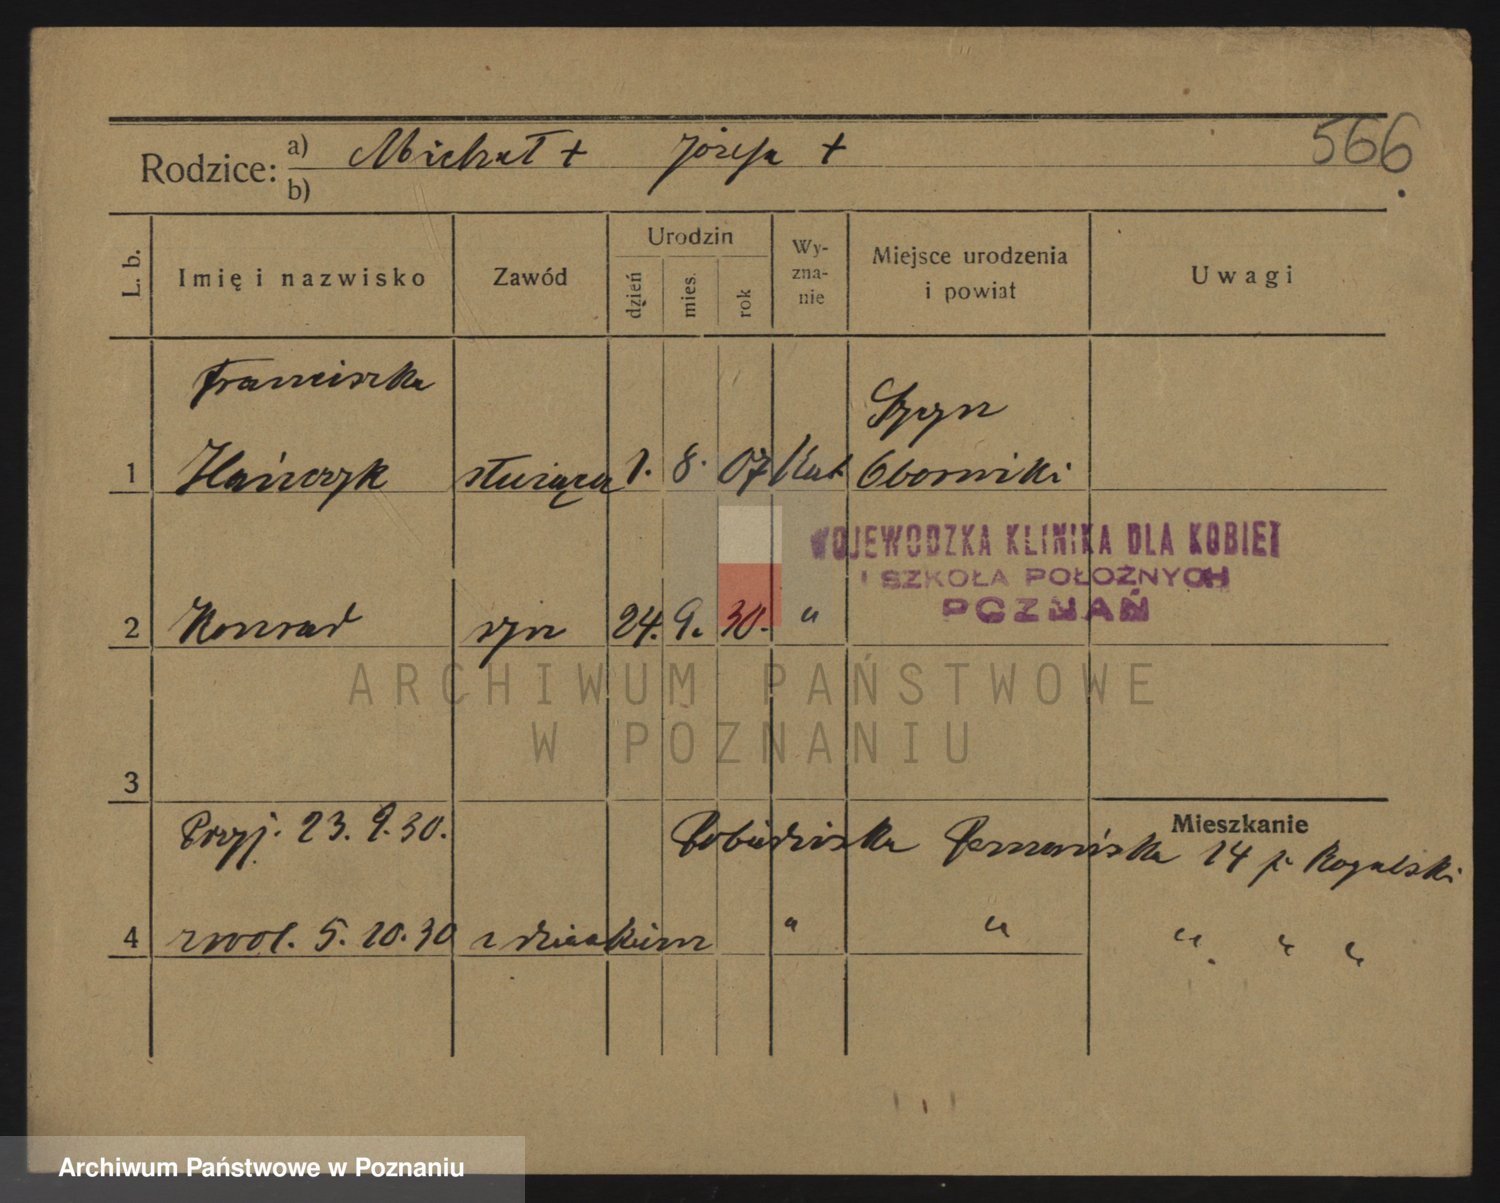 Rodzice: a) Michał + Józefa +
b)
566.
L. b.
Imię i nazwisko
Zawód
Urodzin
dzień
mies.
rok
Wy-
zna-
nie
Miejsce urodzenia
i powiat
Uwagi
Franciszka
1 Hańczyk służąca 1. 8. 07 kat. Oborniki
WOJEWODZKA KLINIKA DLA KOBIET
I SZKOŁA POŁOŻNYCH
POZNAŃ
2 Konrad syn 24. 9. 30. "
ARCHIWUM PAŃSTWOWE
W POZNANIU
3
Mieszkanie
Przyj. 23. 9. 30. Pobiedziska Poznańska 14 p. Rogalski
4 zwol. 5. 10. 30 z dzieckiem " " " " "
Archiwum Państwowe w Poznaniu